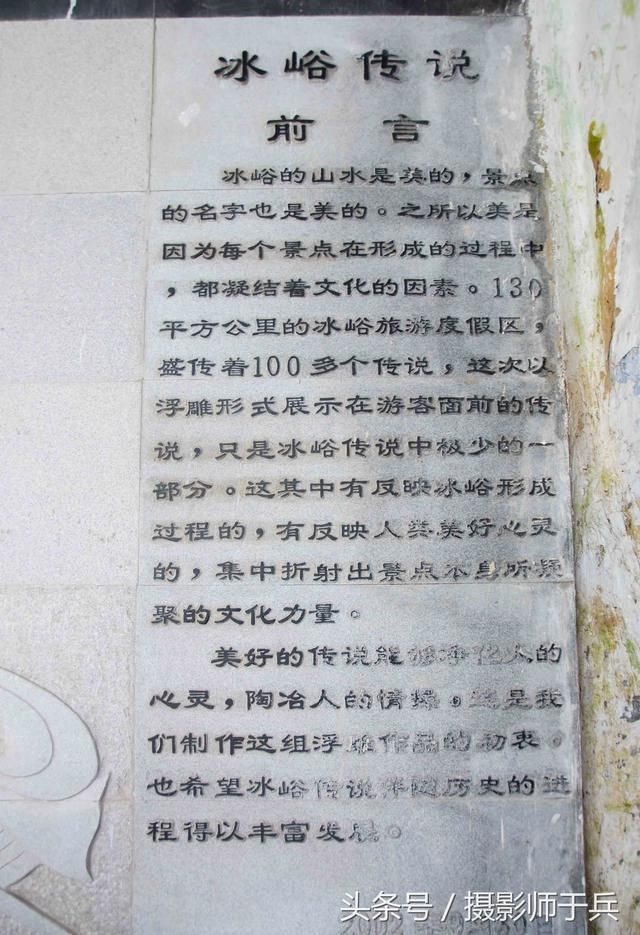 冰峪传说
前 言
冰峪的山水是美的，景点
的名字也是美的。之所以美是
因为每个景点在形成的过程中
，都凝结着文化的因素。130
平方公里的冰峪旅游度假区，
盛传着100多个传说，这次以
浮雕形式展示在游客面前的传
说，只是冰峪传说中极少的一
部分。这其中有反映冰峪形成
过程的，有反映人类美好心灵
的，集中折射出景点本身所凝
聚的文化力量。
美好的传说能够净化人的
心灵，陶冶人的情操。这是我
们制作这组浮雕作品的初衷。
也希望冰峪传说伴随历史的进
程得以丰富发展。
头条号／摄影师于兵
2002